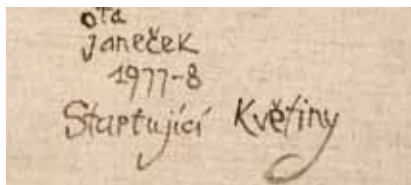 ota
janeček
1977-8
Startující Květiny